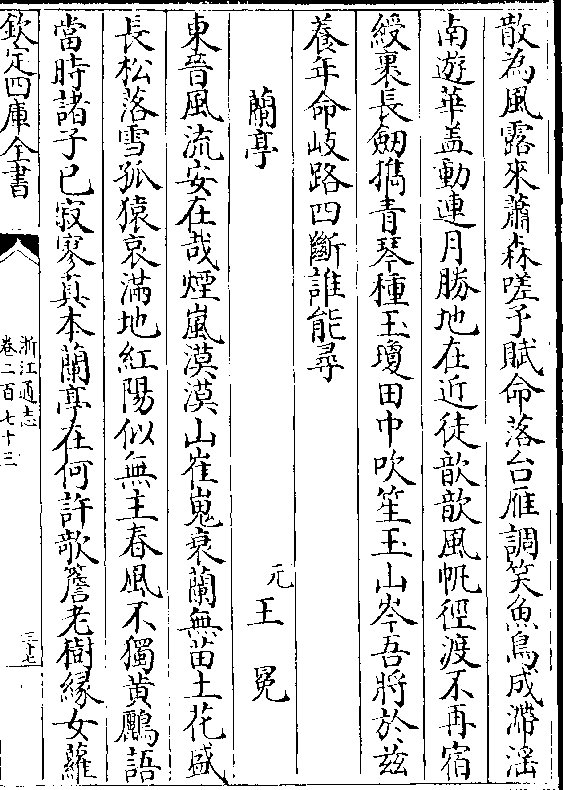 散為風露來蕭森嗟予賦命落台雁調笑魚鳥成滯滛
南遊華盖動連月勝地在近徒歆歆風帆徑渡不再宿
綬裹長劒攜青琴種玉瓊田中吹笙玉山岑吾將於兹
養年命岐路四斷誰能尋
蘭亭
元王冕
東晉風流安在哉煙嵐漠漠山崔嵬衰蘭無苗土花盛
長松落雪孤猿哀滿地紅陽似無主春風不獨黄鸝語
當時諸子已寂寥真本蘭亭在何許欹簷老樹緣女蘿
欽定四庫全書
浙江通志
卷二百七十三
三十七